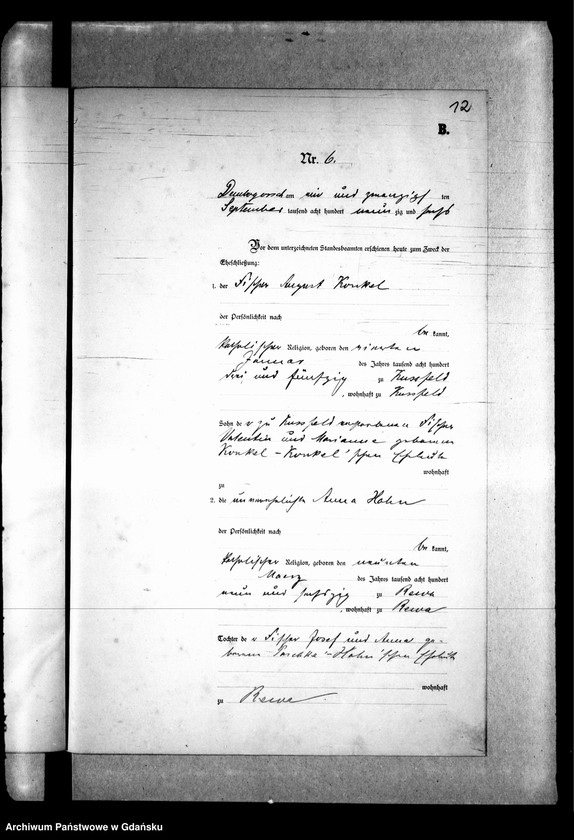 12
B.
Nr. 6.
am ein und zwanzigsten
September tausend acht hundert neun zig und sechs
Vor dem unterzeichneten Standesbeamten erschienen heute zum Zweck der
Eheschließung:
1. der Fischer August Konkel
der Persönlichkeit nach
be kannt,
katholischer Religion, geboren den
Januar des Jahres tausend acht hundert
drei und fünfzig zu Kussfeld
, wohnhaft zu Kussfeld
Sohn de r zu Kussfeld verstorbenen Fischer
Valentin und Marianne geborenen
Konkel - Konkel'schen Eheleute
wohnhaft
zu
2. die unverehelichte Anna Hohn
der Persönlichkeit nach
be kannt,
katholischer Religion, geboren den neunten
Maerz des Jahres tausend acht hundert
neun und sechszig zu Rewa
, wohnhaft zu Rewa
Tochter de r Fischer Josef und Anna ge-
borenen - Hohn'schen Eheleute
wohnhaft
zu Rewa
Archiwum Państwowe w Gdańsku